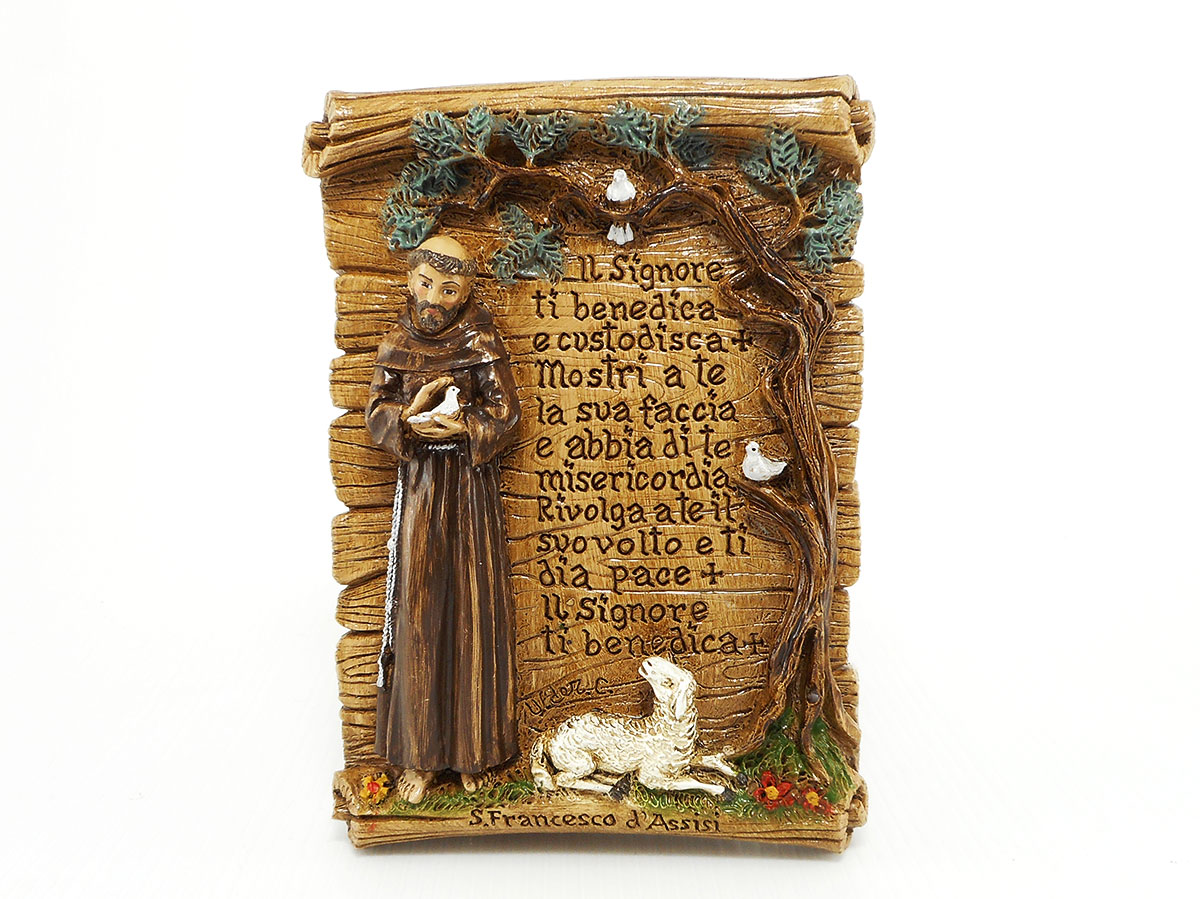 Il Signore
ti benedica
e custodisca +
Mostri a te
la sua faccia
e abbia di te
misericordia
Rivolga a te il
suo volto e ti
dia pace +
Il Signore
ti benedica +
S. Francesco d'Assisi